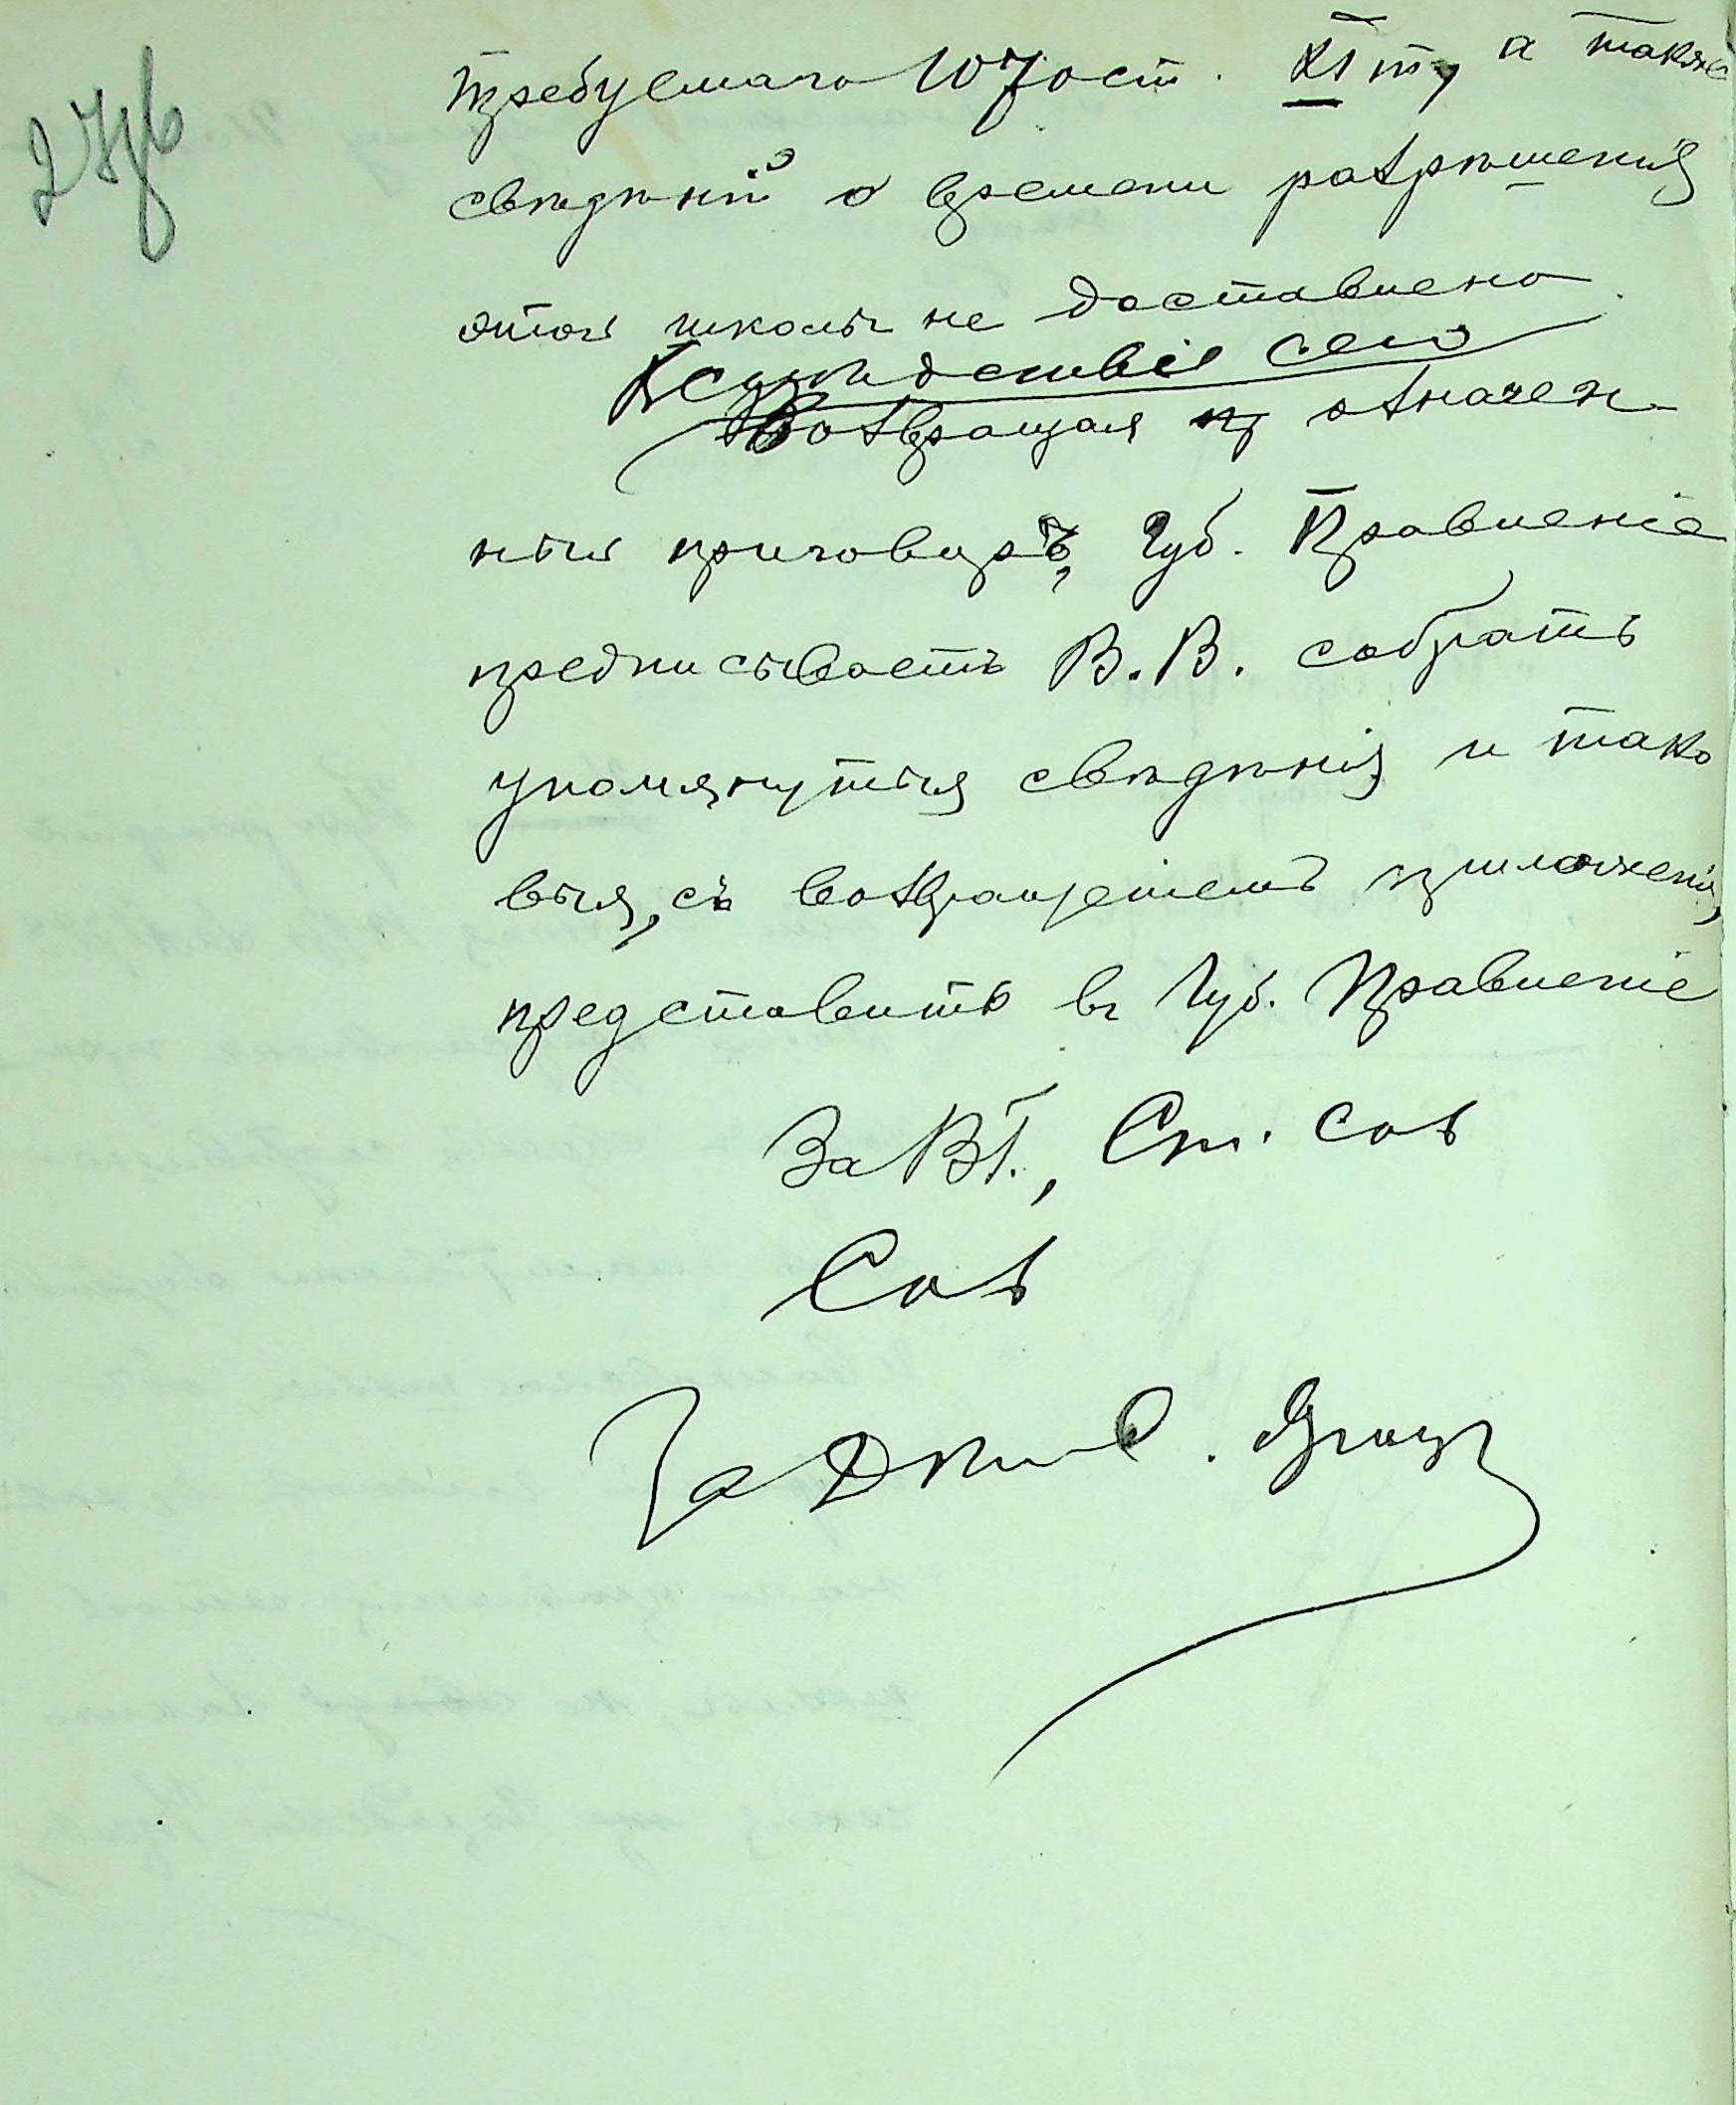 требуемаго 1070 ст. XI т, а также
свѣдѣній о времени разрѣшенія
этой школы не доставлено.
Вслѣдствіе сего
Возвращая означен-
ный приговоръ, Губ. Правленіе
предписываетъ В. В. собрать
упомянутыя свѣдѣнія и тако
выя, съ возвращеніемъ приложенія,
представить въ Губ. Правленіе
За ВГ., Ст. Сов
Сов
За Дѣл